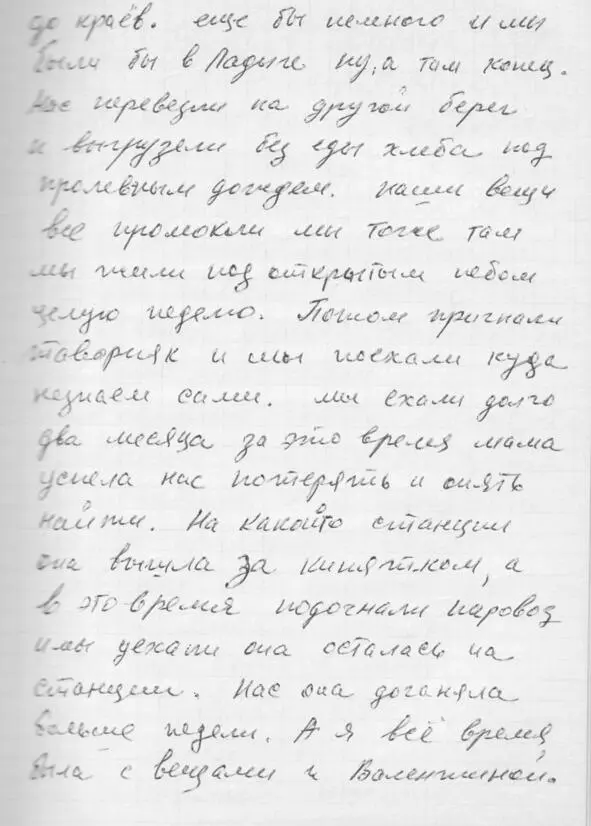 до краёв. еще бы немного и мы
были бы в Ладыге ну, а там конец.
Нас перевезли на другой берег
и выгрузели без еды хлеба под
пролевным дождем. наши вещи
все промокли мы тоже там
мы жили под открытым небом
целую неделю. Потом пригнали
товорняк и мы поехали куда
незнаем сами. мы ехали долго
два месяца за это время мама
успела нас потерять и опять
найти. На какойто станции
она вышла за кипятком, а
в это время подогнали паровоз
и мы уехали она осталась на
станции. Нас она доганяла
больше недели. А я всё время
была с вещами и Валентиной.